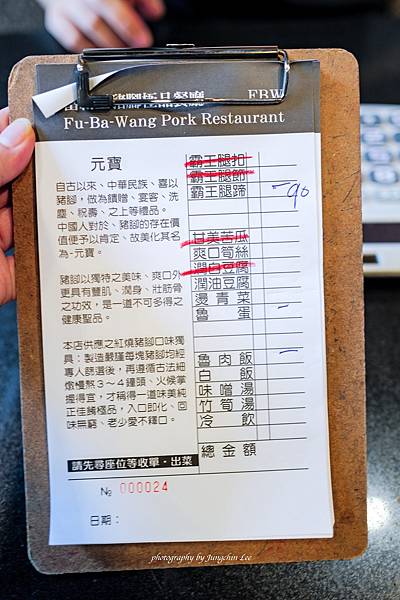 豬腳極品餐廳 FBW
Fu-Ba-Wang Pork Restaurant
元寶
自古以來、中華民族、喜以
豬腳，做為饋贈、宴客、洗
塵、祝壽、之上等禮品。
中國人對於、豬腳的存在價
值便予以肯定、故美化其名
為-元寶。
豬腳以獨特之美味、爽口外
更具有豐肌、潤身、壯筋骨
之功效，是一道不可多得之
健康聖品。
本店供應之紅燒豬腳口味獨
具：製造嚴謹每塊豬腳均經
專人篩選後，再遵循古法細
燉慢熬3～4鐘頭、火候掌
握得宜，才稱得一道味美純
正佳餚極品，入口即化、回
味無窮、老少愛不釋口。
霸王腿扣
霸王腿節
霸王腿蹄 一 90
甘美苦瓜
爽口筍絲
潤白豆腐
潤油豆腐
燙青菜
魯蛋 一
魯肉飯 一
白飯
味噌湯
竹筍湯
冷飲
總金額
請先尋座位等收單·出菜
№ 000024
日期：
photography by Jungchin Lee